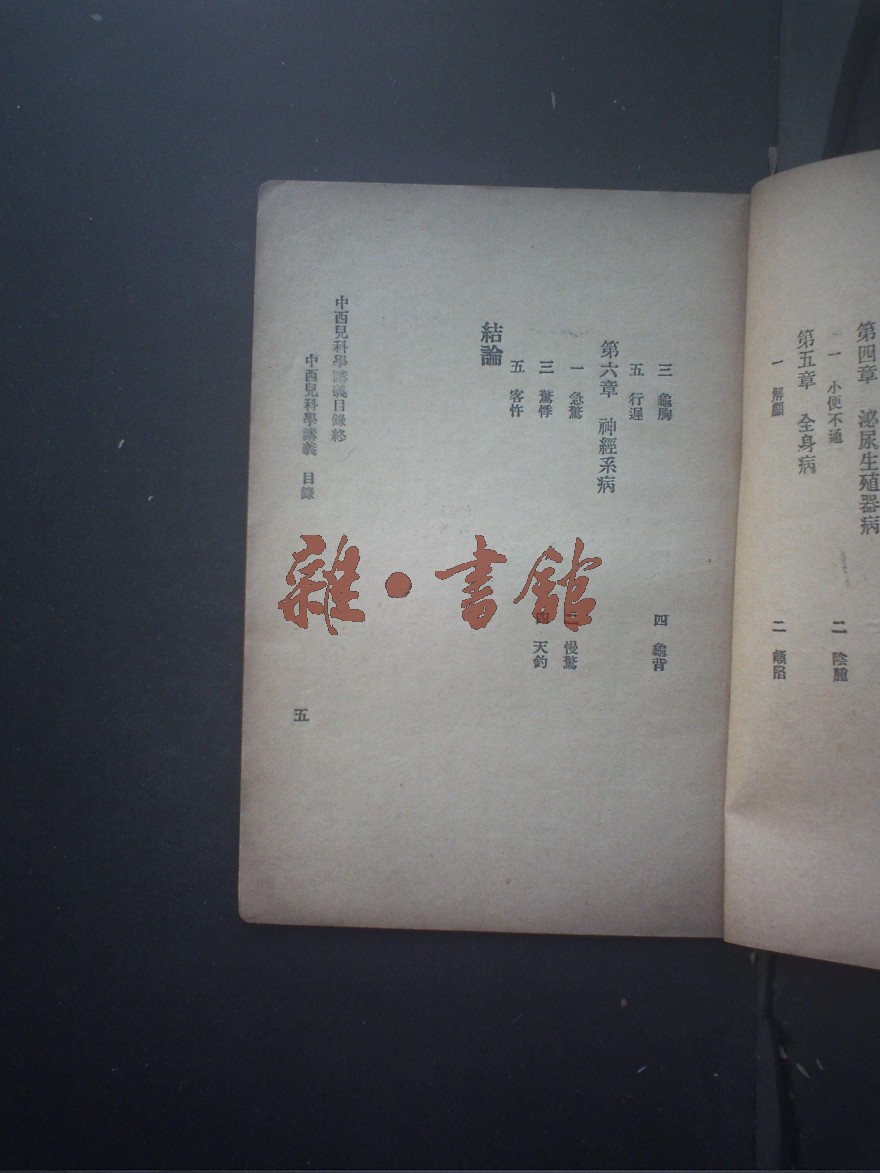 第四章　泌尿生殖器病
一　小便不通　二　陰腫
第五章　全身病
一　解顱　二　顖陷
三　龜胸　四　龜背
五　行遲
第六章　神經系病
一　急驚　二　慢驚
三　驚悸　四　天釣
五　客忤
結論
中西兒科學講義目錄終
中西兒科學講義　目錄　五
雜·書館